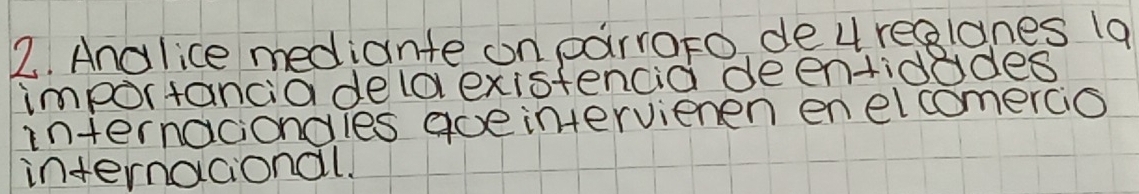 2. Analice mediante un párrafo de 4 reglones la
importancia de la existencia de entidades
internacionales que intervienen en el comercio
internacional.